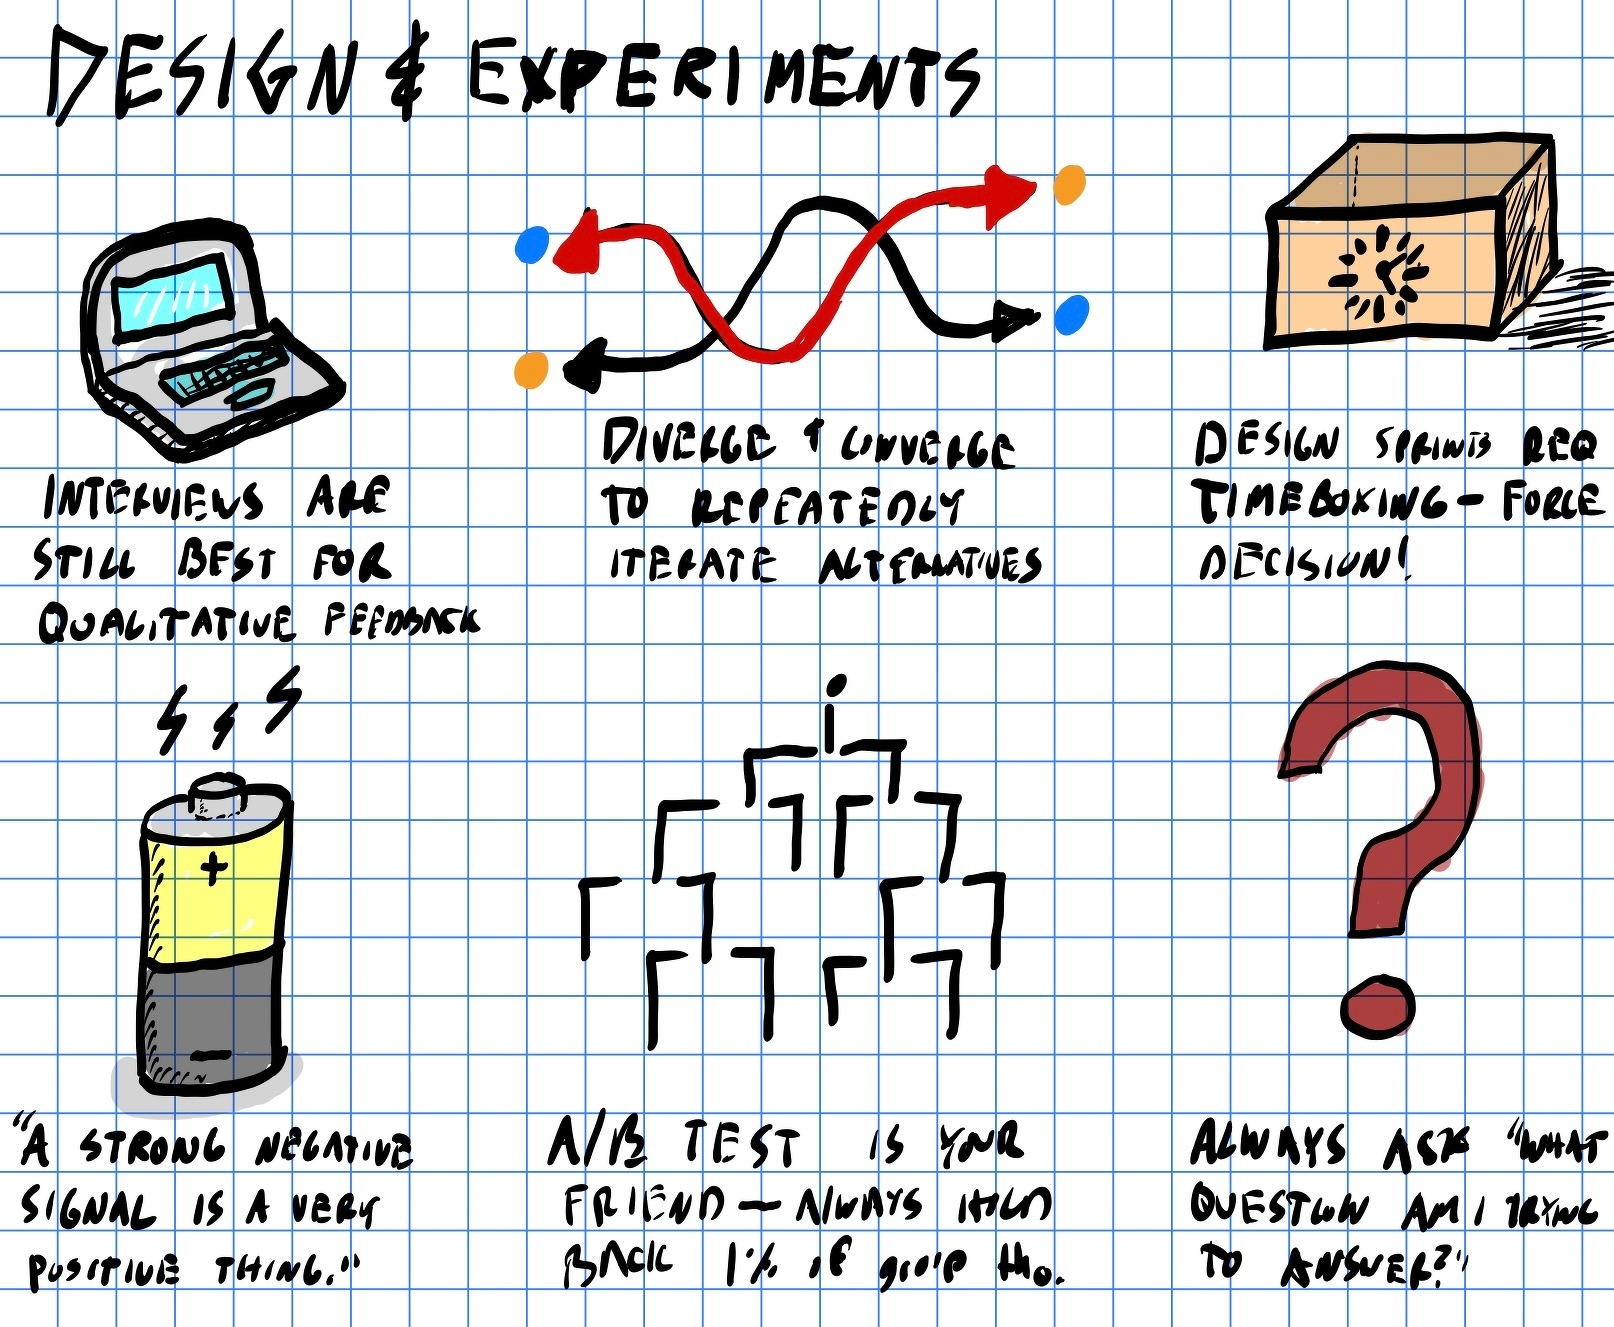 DESIGN & EXPERIMENTS
INTERVIEWS ARE
STILL BEST FOR
QUALITATIVE FEEDBACK
DIVERGE & CONVERGE
TO REPEATEDLY
ITERATE ALTERNATIVES
DESIGN SPRINTS REQ
TIMEBOXING - FORCE
DECISION!
+
-
"A STRONG NEGATIVE
SIGNAL IS A VERY
POSITIVE THING."
A/B TEST IS YOUR
FRIEND - ALWAYS HOLD
BACK 1% of group tho.
ALWAYS ASK "WHAT
QUESTION AM I TRYING
TO ANSWER?"